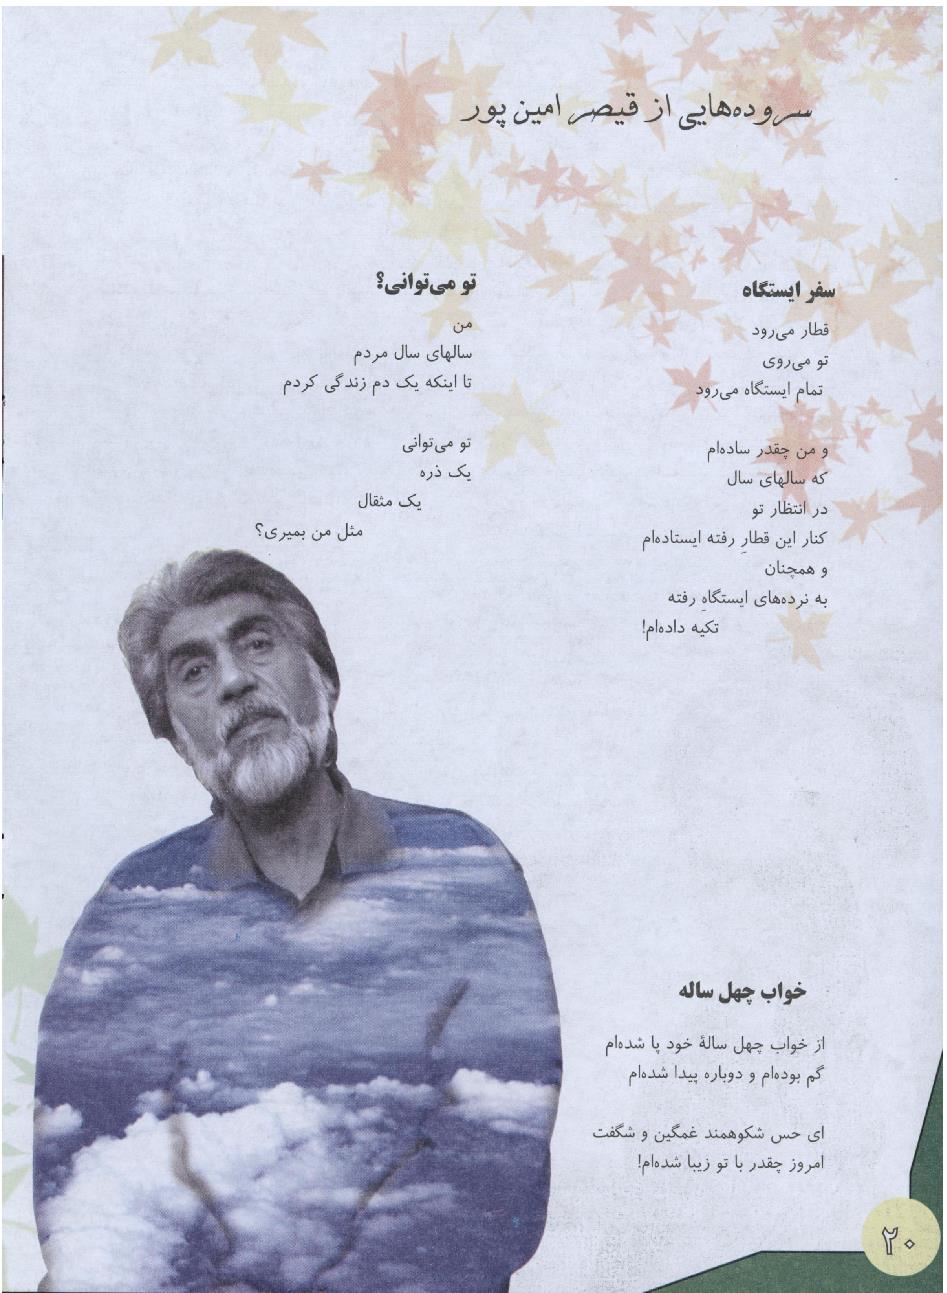 سروده‌هایی از قیصر امین پور
سفر ایستگاه
قطار می‌رود
تو می‌روی
تمام ایستگاه می‌رود
و من چقدر ساده‌ام
که سالهای سال
در انتظار تو
کنار این قطارِ رفته ایستاده‌ام
و همچنان
به نرده‌های ایستگاهِ رفته
تکیه داده‌ام!
تو می‌توانی؟
من
سالهای سال مردم
تا اینکه یک دم زندگی کردم
تو می‌توانی
یک ذره
یک مثقال
مثل من بمیری؟
خواب چهل ساله
از خواب چهل سالۀ خود پا شده‌ام
گم بوده‌ام و دوباره پیدا شده‌ام
ای حس شکوهمند غمگین و شگفت
امروز چقدر با تو زیبا شده‌ام!
۲۰